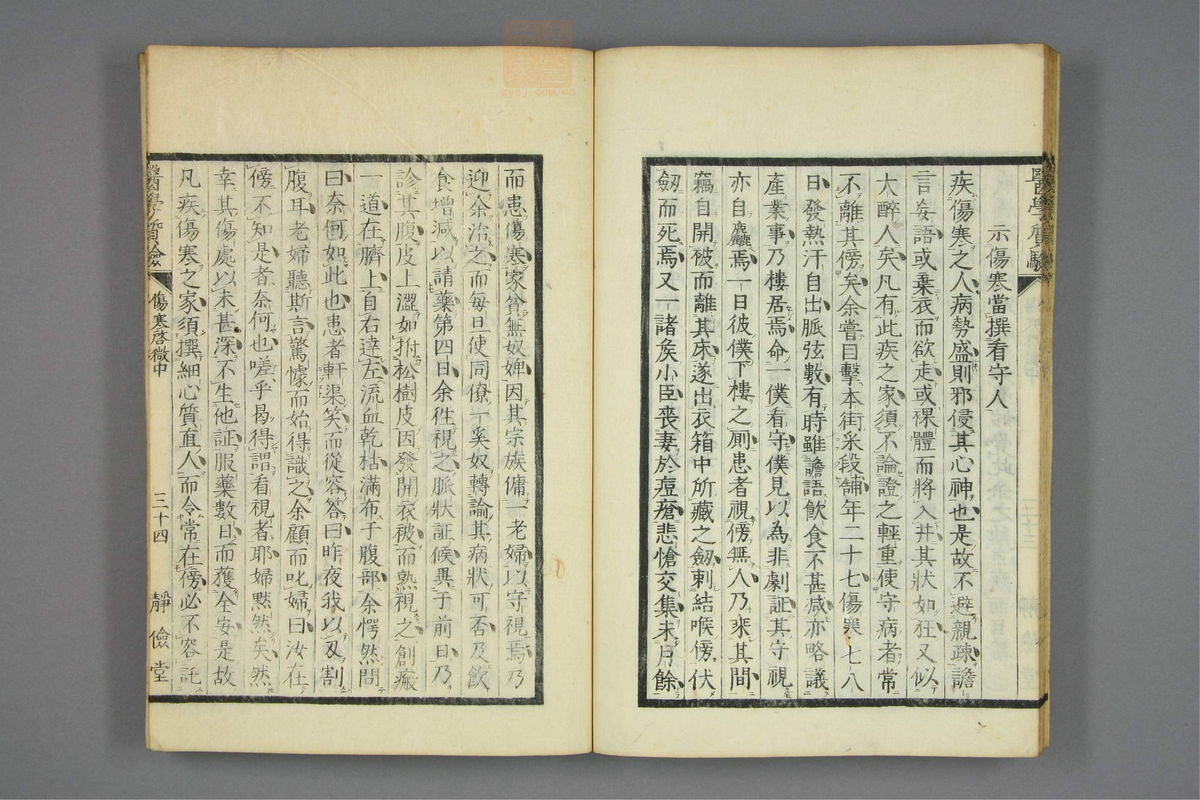 醫學質驗
示傷寒當撰看守人
疾傷寒之人病勢盛則邪侵其心神也是故不避親疎譫
言妄語或棄衣而欲走或裸體而將入井其狀如狂又似
大醉人矣凡有此疾之家須不論證之輕重使守病者常
不離其傍矣余嘗目擊本街采段舖年二十七傷寒七八
日發熱汗自出脈弦數有時雖譫語飲食不甚減亦略議
產業事乃樓居焉命一僕看守僕見以為非劇証其守視
亦自麁焉一日彼僕下樓之厠患者視傍無人乃乘其間
竊自開被而離其床遂出衣箱中所藏之劔刺結喉傍伏
劔而死焉又一諸矦小臣喪妻於痘瘡悲愴交集未月餘
而患傷寒家貧無奴婢因其宗族傭一老婦以守視焉乃
迎余治之而每旦使同僚一奚奴轉論其病狀可否及飲
食增減以請藥第四日余徃視之脈狀証候異于前日乃
診其腹皮上澀如拊松樹皮因發開衣被而熟視之創瘢
一道在臍上自右達左流血乾枯滿布于腹部余愕然問
曰奈何如此也患者軒渠笑而從容答曰昨夜我以刄割
腹耳老婦聽斯言驚懅而始得識之余顧而叱婦曰汝在
傍不知是者奈何也嗟乎曷得謂看視者耶婦黙然矣然
幸其傷處以未甚深不生他証服藥數日而獲全安是故
凡疾傷寒之家須撰細心質直人而令常在傍必不容託
醫學質驗
傷寒啓微中
三十四
靜儉堂